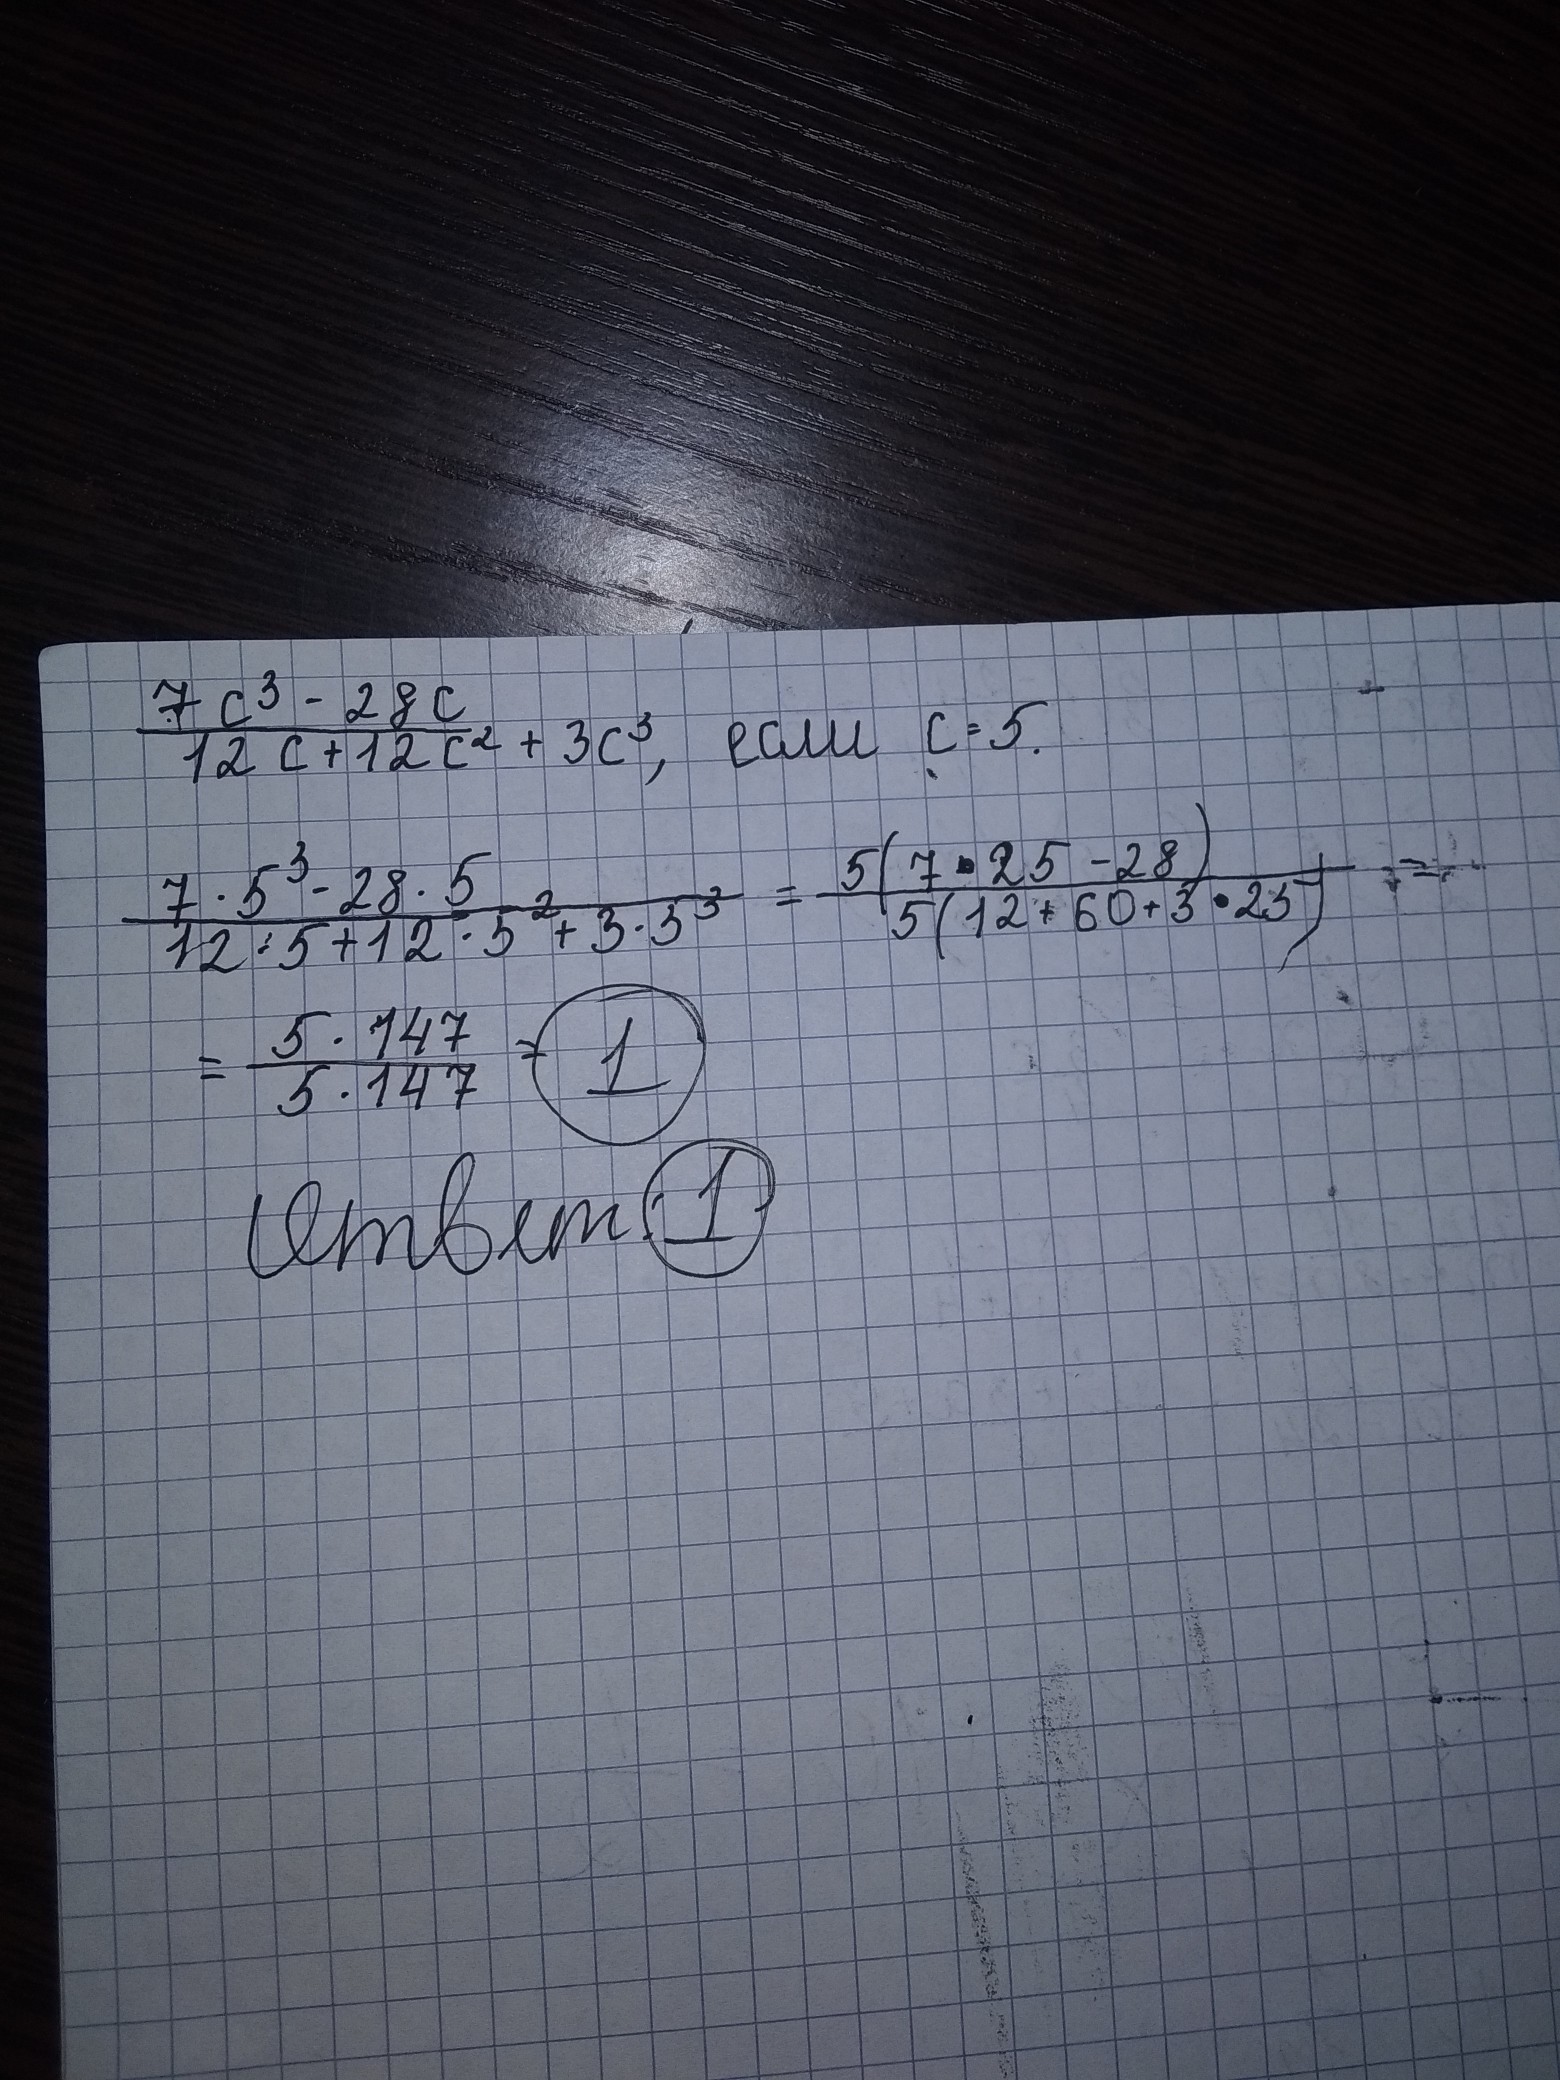 7c³ - 28c
12c + 12c² + 3c³, если c = 5.
7 · 5³ - 28 · 5 = 5(7 · 25 - 28) =
12 · 5 + 12 · 5² + 3 · 5³ 5(12 + 60 + 3 · 25)
= 5 · 147 = 1
5 · 147
Ответ: 1